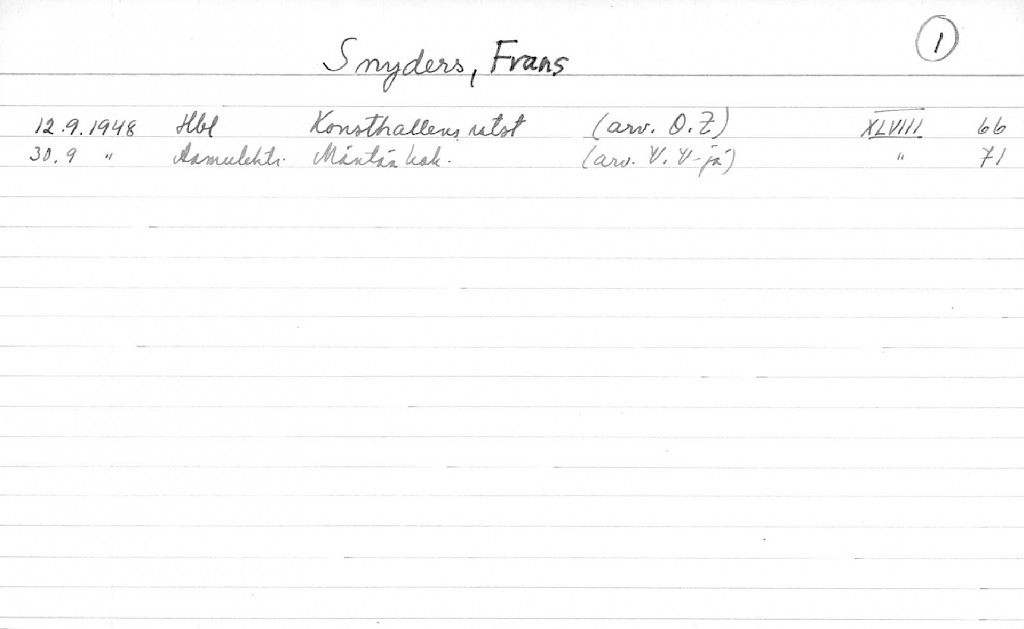 Snyders, Frans 1
12.9.1948 Hbl Konsthallens utst (arv. O.Z) XLVIII 66
30.9 " Aamulehti. Mäntän kok. (arv. V.V-jä) " 71